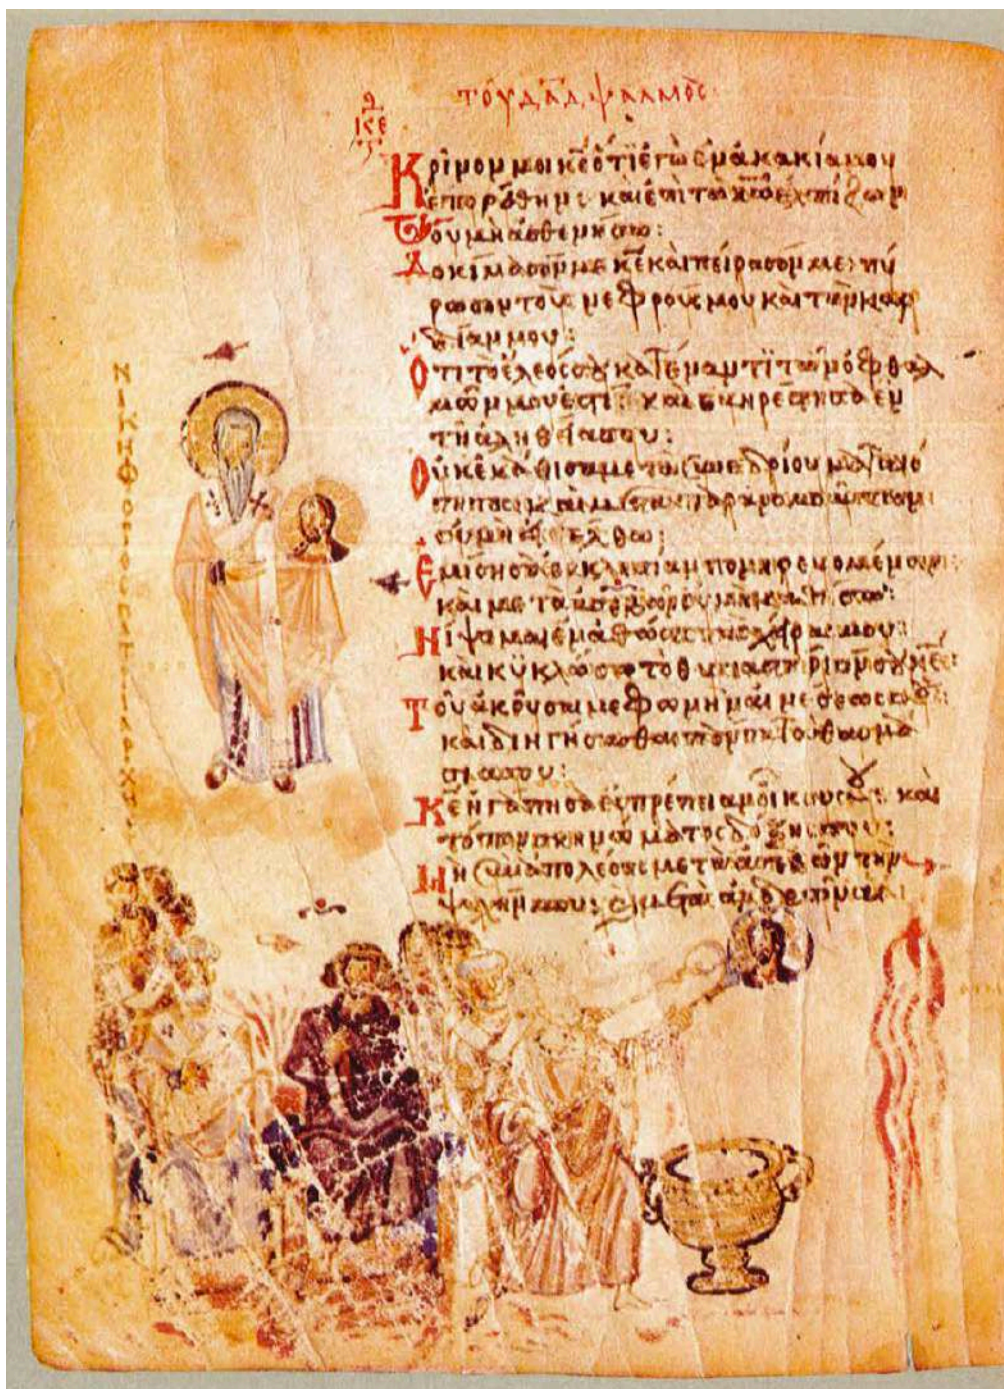 κε
τοῦ δαδ ψαλμος
Κρῖνόν μοι κε ὅτι ἐγὼ ἐν ἀκακία μου
ἐπορεύθην· καὶ ἐπὶ τῶ κω ἐλπίζων
οὐ μὴ ἀσθενήσω:
Δοκίμασόν με κε καὶ πείρασόν με πύ
ρωσον τοὺς νεφρούς μου καὶ τὴν καρ
δίαν μου:
Ὅτι τὸ ἔλεός σου κατέναντι τῶν ὀφθαλ
μῶν μου ἐστι: καὶ εὐηρέστησα ἐν
τῆ ἀληθεία σου:
Οὐκ ἐκάθισα μετὰ συνεδρίου ματαιό
τητος καὶ μετὰ παρανομούντων
οὐ μὴ εἰσέλθω:
Ἐμίσησα ἐκκλησίαν πονηρευομένων:
καὶ μετὰ ἀσεβῶν οὐ μὴ καθίσω:
Νίψομαι ἐν ἀθώοις τὰς χεῖράς μου:
καὶ κυκλώσω τὸ θυσιαστήριόν σου κε:
Τοῦ ἀκοῦσαι με φωνὴν αἰνέσεώς σου:
καὶ διηγήσασθαι πάντα τὰ θαυμά
σια σου:
Κε ἠγάπησα εὐπρέπειαν οἴκου σου: καὶ
τόπον σκηνώματος δόξης σου:
Μὴ συναπολέσης μετὰ ἀσεβῶν τὴν
ψυχήν μου: